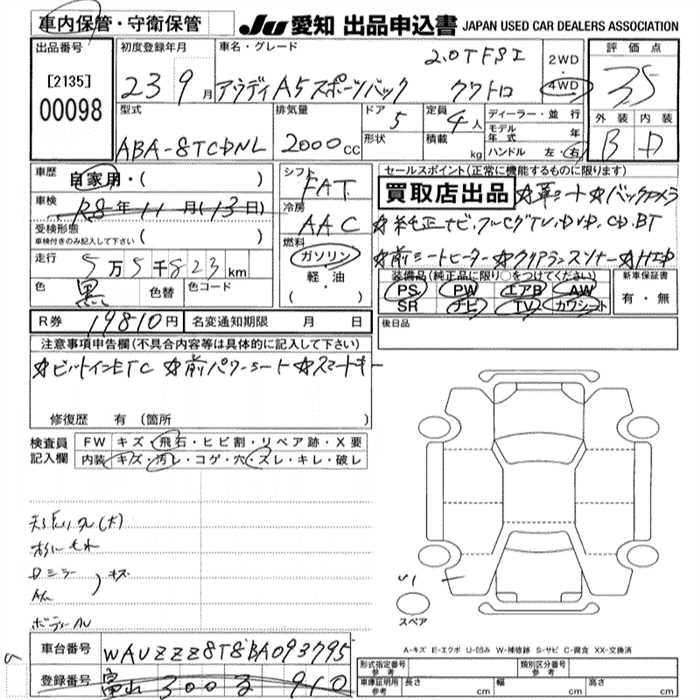 車内保管・守衛保管
JU 愛知 出品申込書 JAPAN USED CAR DEALERS ASSOCIATION
出品番号
[2135]
00098
初度登録年月
23 9月
車名・グレード
2.0TFSI
アウディA5スポーツバック クワトロ
2WD
4WD
評価点
3.5
外装 内装
B D
型式
ABA-8TCDNL
排気量
2000cc
ドア 5
形状
定員 4人
積載 kg
ディーラー・並行
モデル年式 年
ハンドル 左・右
車歴
自家用・( )
車検
R8年11月(13日)
受検形態
車検付きのみ記入して下さい ( )
走行
5万5千823km
色 黒 色替 色コード
シフト
FAT
冷房
AAC
燃料
ガソリン
軽・油
( )
セールスポイント(正常に機能するものに限ります)
買取店出品 ☆革シート☆バックカメラ
☆純正ナビ・フルセグTV・DVD・CD・BT
☆前シートヒーター☆クリアランスソナー☆HID
装備品(純正品に限り○をつけてください)
PS PW エアB AW
SR ナビ TV カワシート
新車保証書
有・無
R券 19810円 名変通知期限 月 日
後日品
注意事項申告欄(不具合内容等は具体的に記入して下さい)
☆ビルトインETC ☆前パワーシート☆スマートキー
修復歴 有 (箇所
検査員
記入欄
FW キズ・飛石・ヒビ割・リペア跡・X要
内装 キズ・汚レ・コゲ・穴・ズレ・キレ・破レ
Dミラー
キズ
スペア
A-キズ E-エクボ U-凹み W-補修跡 S-サビ C-腐食 XX-交換済
車台番号 WAUZZZ8T8BA093795
登録番号 富山 300 る 910
形式指定番号
参考
類別区分番号
参考
車庫証明用
参考
長さ cm 幅 cm 高さ cm